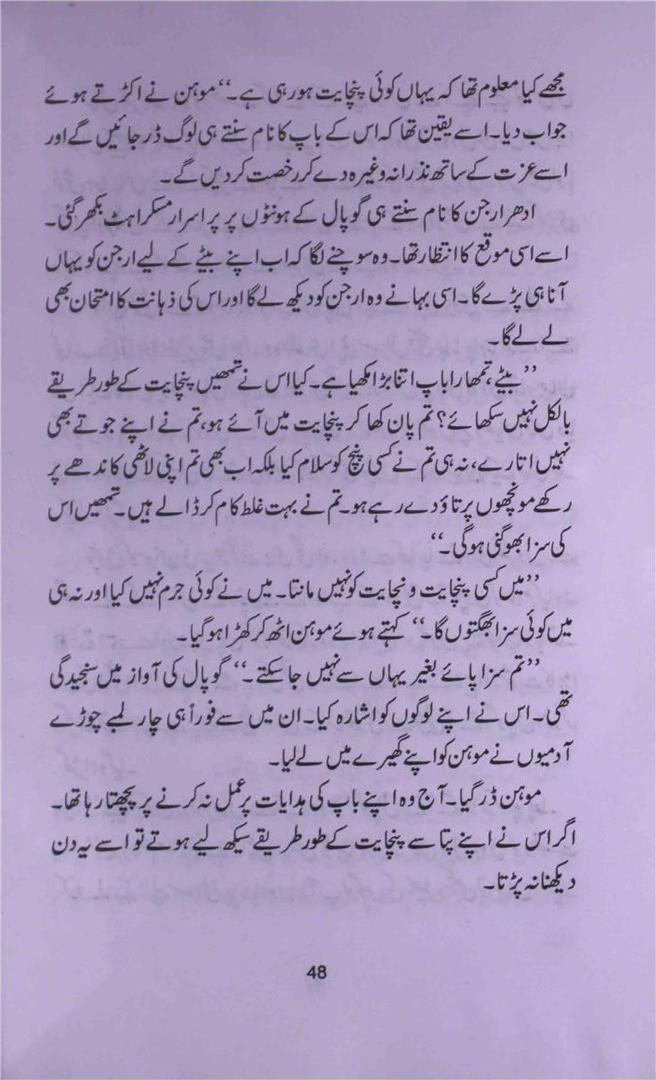 مجھے کیا معلوم تھا کہ یہاں کوئی پنچایت ہورہی ہے۔“ موہن نے اکڑتے ہوئے
جواب دیا۔ اسے یقین تھا کہ اس کے باپ کا نام سنتے ہی لوگ ڈر جائیں گے اور
اسے عزت کے ساتھ نذرانہ وغیرہ دے کر رخصت کردیں گے۔
ادھر ارجن کا نام سنتے ہی گوپال کے ہونٹوں پر پراسرار مسکراہٹ بکھر گئی۔
اسے اسی موقع کا انتظار تھا۔ وہ سوچنے لگا کہ اب اپنے بیٹے کے لیے ارجن کو یہاں
آنا ہی پڑے گا۔ اسی بہانے وہ ارجن کو دیکھ لے گا اور اس کی ذہانت کا امتحان بھی
لے لے گا۔
”بیٹے، تمھارا باپ اتنا بڑا مکھیا ہے۔ کیا اس نے تمھیں پنچایت کے طور طریقے
بالکل نہیں سکھائے؟ تم پان کھا کر پنچایت میں آئے ہو، تم نے اپنے جوتے بھی
نہیں اتارے، نہ ہی تم نے کسی پنچ کو سلام کیا بلکہ اب بھی تم اپنی لاٹھی کاندھے پر
رکھے مونچھوں پر تاؤ دے رہے ہو۔ تم نے بہت غلط کام کرڈالے ہیں۔ تمھیں اس
کی سزا بھوگنی ہوگی۔“
”میں کسی پنچایت ونچایت کو نہیں مانتا۔ میں نے کوئی جرم نہیں کیا اور نہ ہی
میں کوئی سزا بھگتوں گا۔“ کہتے ہوئے موہن اٹھ کر کھڑا ہوگیا۔
”تم سزا پائے بغیر یہاں سے نہیں جاسکتے۔“ گوپال کی آواز میں سنجیدگی
تھی۔ اس نے اپنے لوگوں کو اشارہ کیا۔ ان میں سے فوراً ہی چار لمبے چوڑے
آدمیوں نے موہن کو اپنے گھیرے میں لے لیا۔
موہن ڈر گیا۔ آج وہ اپنے باپ کی ہدایات پر عمل نہ کرنے پر پچھتا رہا تھا۔
اگر اس نے اپنے پتا سے پنچایت کے طور طریقے سیکھ لیے ہوتے تو اسے یہ دن
دیکھنا نہ پڑتا۔
48